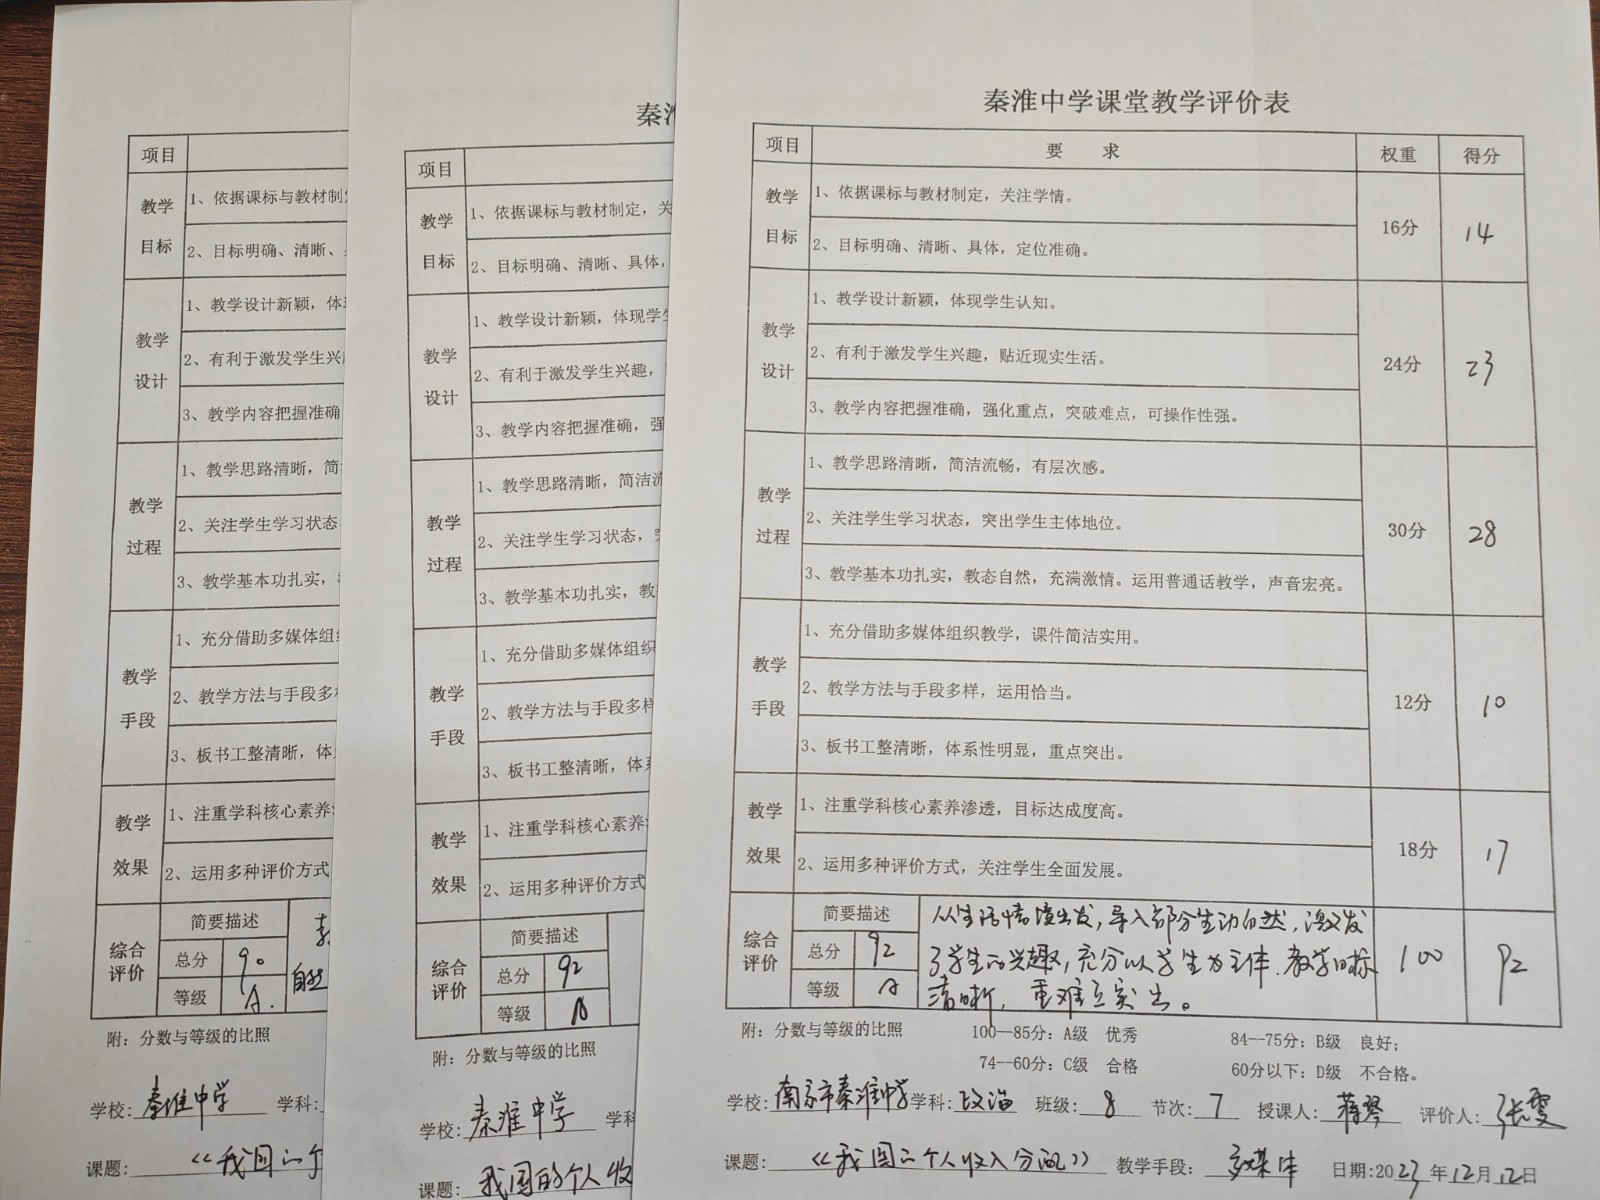 项目
教学
目标
1、依据课标与教材制
2、目标明确、清晰、
教学
设计
1、教学设计新颖，体
2、有利于激发学生兴
3、教学内容把握准确
教学
过程
1、教学思路清晰，简
2、关注学生学习状态
3、教学基本功扎实，
教学
手段
1、充分借助多媒体组
2、教学方法与手段多
3、板书工整清晰，体
教学
效果
1、注重学科核心素养
2、运用多种评价方式
综合
评价
简要描述
总分 90
等级 A.
自然
附：分数与等级的比照
学校：秦淮中学 学科：
课题：《我国的个
秦淮
项目
教学
目标
1、依据课标与教材制定，关
2、目标明确、清晰、具体，
教学
设计
1、教学设计新颖，体现学
2、有利于激发学生兴趣，
3、教学内容把握准确，强
教学
过程
1、教学思路清晰，简洁流
2、关注学生学习状态，
3、教学基本功扎实，教
教学
手段
1、充分借助多媒体组织
2、教学方法与手段多样
3、板书工整清晰，体系
教学
效果
1、注重学科核心素养
2、运用多种评价方式
综合
评价
简要描述
总分 92
等级 A
附：分数与等级的比照
学校：秦淮中学 学科
课题：我国的个人收
秦淮中学课堂教学评价表
项目 要 求 权重 得分
教学
目标
1、依据课标与教材制定，关注学情。
2、目标明确、清晰、具体，定位准确。
16分 14
教学
设计
1、教学设计新颖，体现学生认知。
2、有利于激发学生兴趣，贴近现实生活。
3、教学内容把握准确，强化重点，突破难点，可操作性强。
24分 23
教学
过程
1、教学思路清晰，简洁流畅，有层次感。
2、关注学生学习状态，突出学生主体地位。
3、教学基本功扎实，教态自然，充满激情。运用普通话教学，声音宏亮。
30分 28
教学
手段
1、充分借助多媒体组织教学，课件简洁实用。
2、教学方法与手段多样，运用恰当。
3、板书工整清晰，体系性明显，重点突出。
12分 10
教学
效果
1、注重学科核心素养渗透，目标达成度高。
2、运用多种评价方式，关注学生全面发展。
18分 17
综合
评价
简要描述
总分 92
等级 A
从生活情境出发，导入部分生动自然，激发
了学生的兴趣，充分以学生为主体.教学目标
清晰，重难点突出。
100 92
附：分数与等级的比照 100--85分：A级 优秀 84--75分：B级 良好；
74--60分：C级 合格 60分以下：D级 不合格。
学校：南京市秦淮中学 学科：政治 班级：8 节次：7 授课人：蒋琴 评价人：张雯
课题：《我国的个人收入分配》 教学手段：多媒体 日期：2023年12月12日